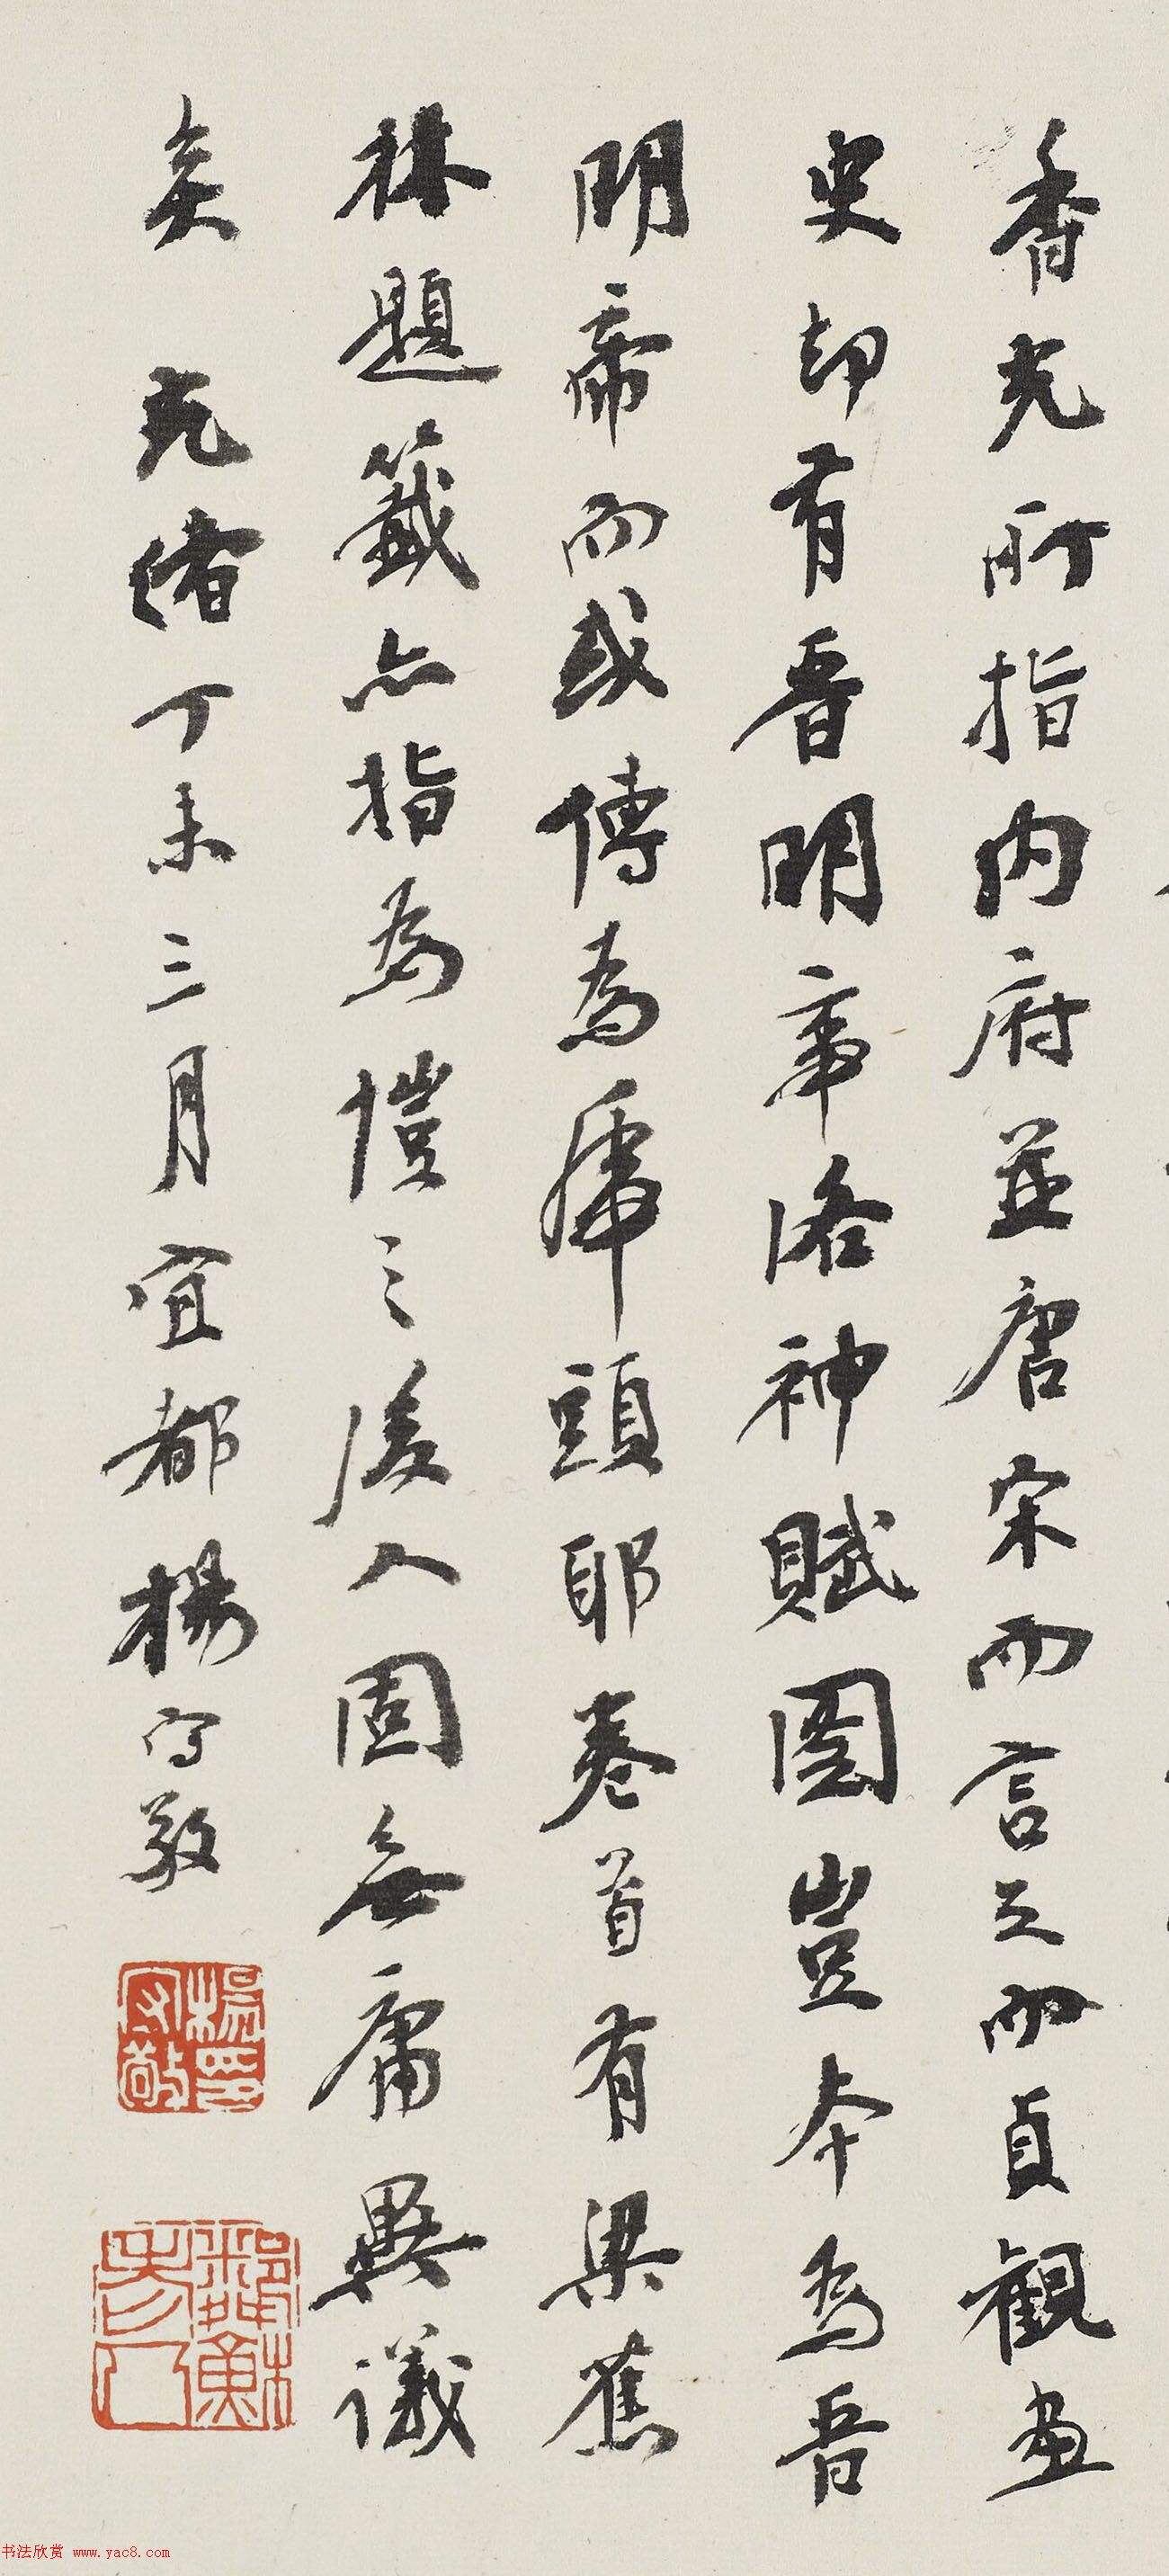 香光所指内府並唐宋而言之而貞觀畫
史却有晉明帝洛神賦圖豈本為晉
明帝而或傳為虎頭耶卷首有梁蕉
林題籤亦指為愷之後人固無庸異議
矣 光緒丁未三月宜都楊守敬
楊印守敬
鄰蘇老人
书法欣赏 www.yac8.com